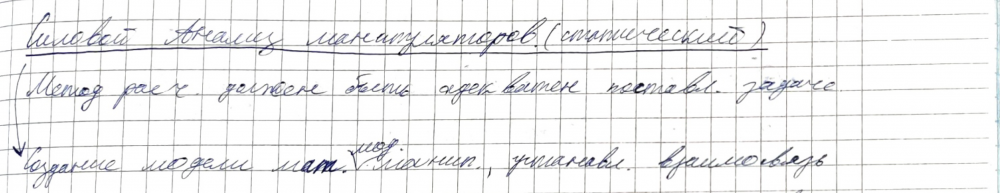 Силовой Анализ манипуляторов. (статический)
Метод расч. должен быть адекватен поставл. задаче
мод.
Создание модели мат. манип., установл. взаимосвязь